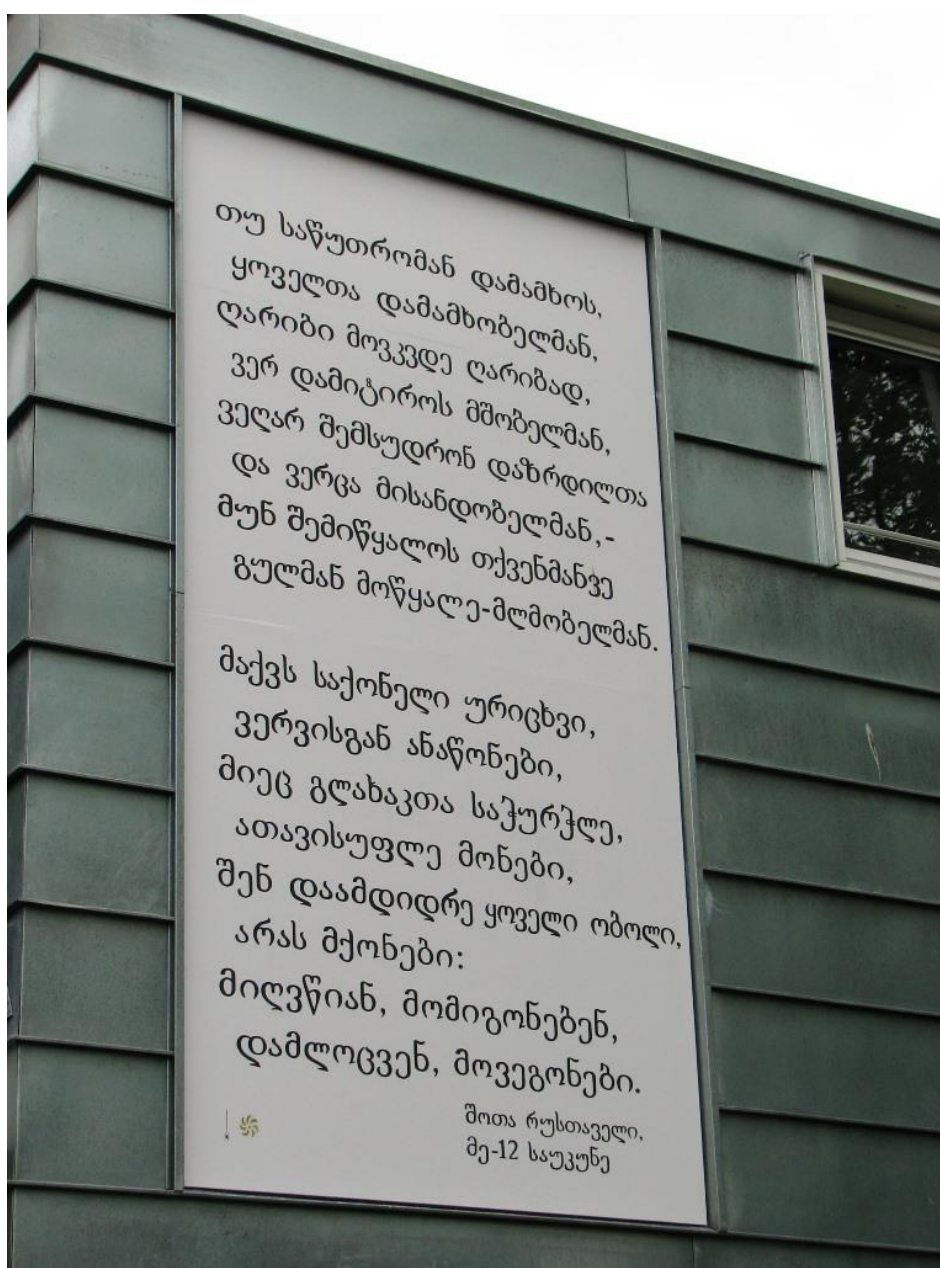 თუ საწუთრომან დამამხოს,
ყოველთა დამამხობელმან,
ღარიბი მოვკვდე ღარიბად,
ვერ დამიტიროს მშობელმან,
ვეღარ შემსუდრონ დაზრდილთა
და ვერცა მისანდობელმან,-
მუნ შემიწყალოს თქვენმანვე
გულმან მოწყალე-მლმობელმან.
მაქვს საქონელი ურიცხვი,
ვერვისგან ანაწონები,
მიეც გლახაკთა საჭურჭლე,
ათავისუფლე მონები,
შენ დაამდიდრე ყოველი ობოლი,
არას მქონები:
მიღვწიან, მომიგონებენ,
დამლოცვენ, მოვეგონები.
შოთა რუსთაველი,
მე-12 საუკუნე